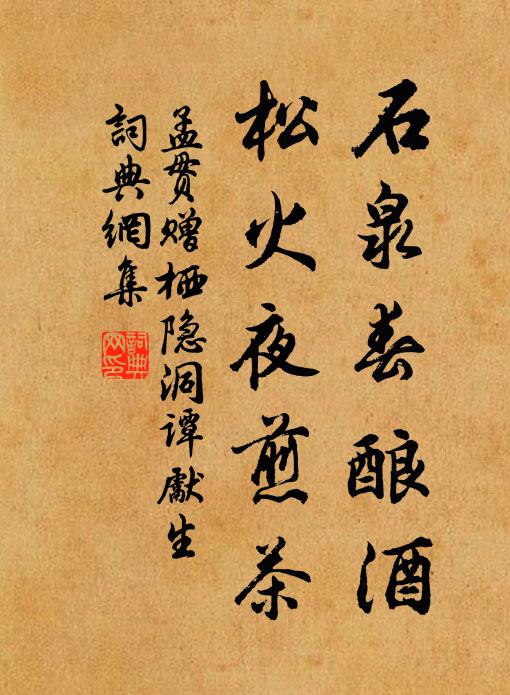 石泉春酿酒
松火夜煎茶
孟贯赠栖隐洞谭獻生
詞典網集
詞典網印